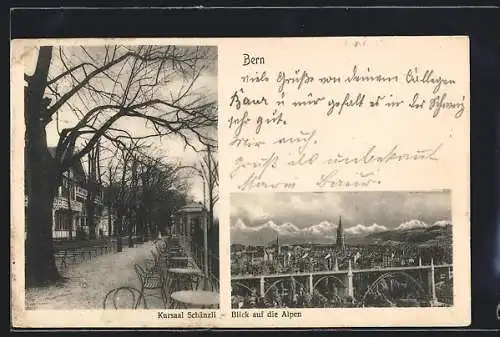 Bern
viele Grüße von deinem Collegen
Baar u mir gefalt es in der Schweiz
sehr gut.
Mir auch.
Gruß als unbekannt
Kursaal Schänzli – Blick auf die Alpen